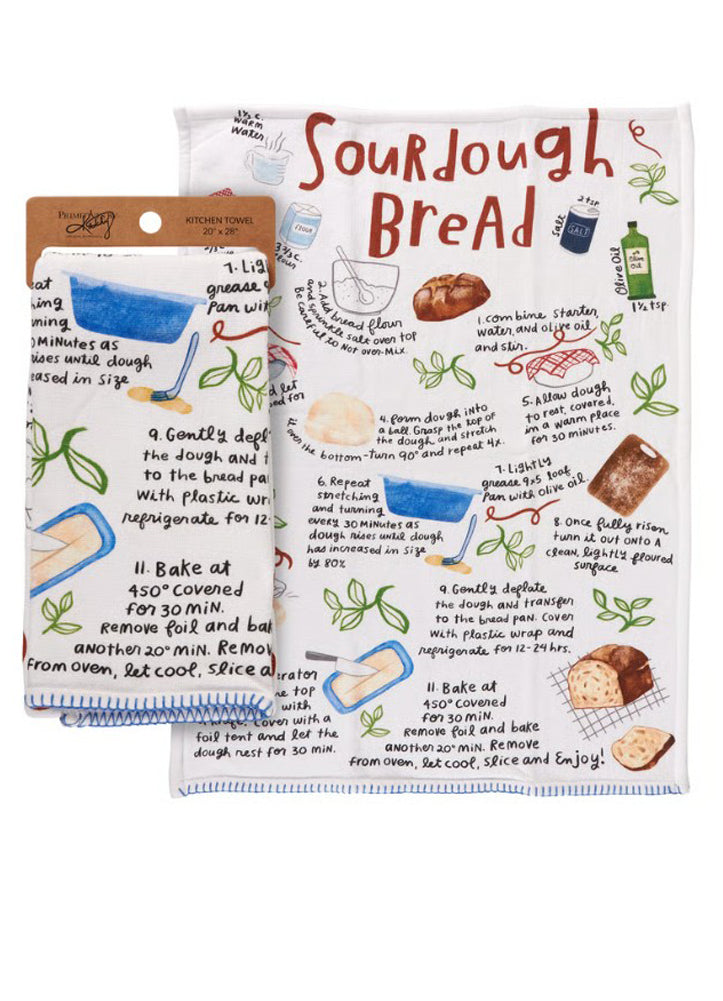 1½ c.
warm
water
SOURDOUGH
BREAD
PRIMITIVES BY
Kathy
KITCHEN TOWEL
20" x 28"
FLOUR
flour
Salt
2 tsp
SALT
Olive Oil
Olive
OIL
1½ tsp.
1. Combine starter,
water, and olive oil
and stir.
2. Add bread flour
and sprinkle salt over top
Be careful to Not over-Mix.
d let
ed for
4. form dough into
a ball. Grasp the top of
the dough and stretch
it over the bottom-turn 90° and repeat 4x.
5. Allow dough
to rest, covered,
in a warm place
for 30 minutes.
6. Repeat
stretching
and turning
every 30 Minutes as
dough rises until dough
has increased in size
by 80%
7. Lightly
grease 9x5 loaf
Pan with olive oil.
8. Once fully risen
turn it out onto a
clean, lightly floured
surface
9. Gently deflate
the dough and transfer
to the bread pan. Cover
with plastic wrap and
refrigerate for 12-24 hrs.
erator
e top
with
Cover with a
foil tent and let the
dough rest for 30 min.
11. Bake at
450° covered
for 30 MiN.
Remove foil and bake
another 20° MiN. Remove
from oven, let cool, slice and Enjoy!
7. Ligh
grease 9
Pan with
eat
hing
rning
0 Minutes as
rises until dough
eased in size
9. Gently defl
the dough and t
to the bread pa
With plastic wra
refrigerate for 12-
11. Bake at
450° covered
for 30 MiN.
Remove foil and bak
another 20° MiN. Remov
from oven, let cool, slice a